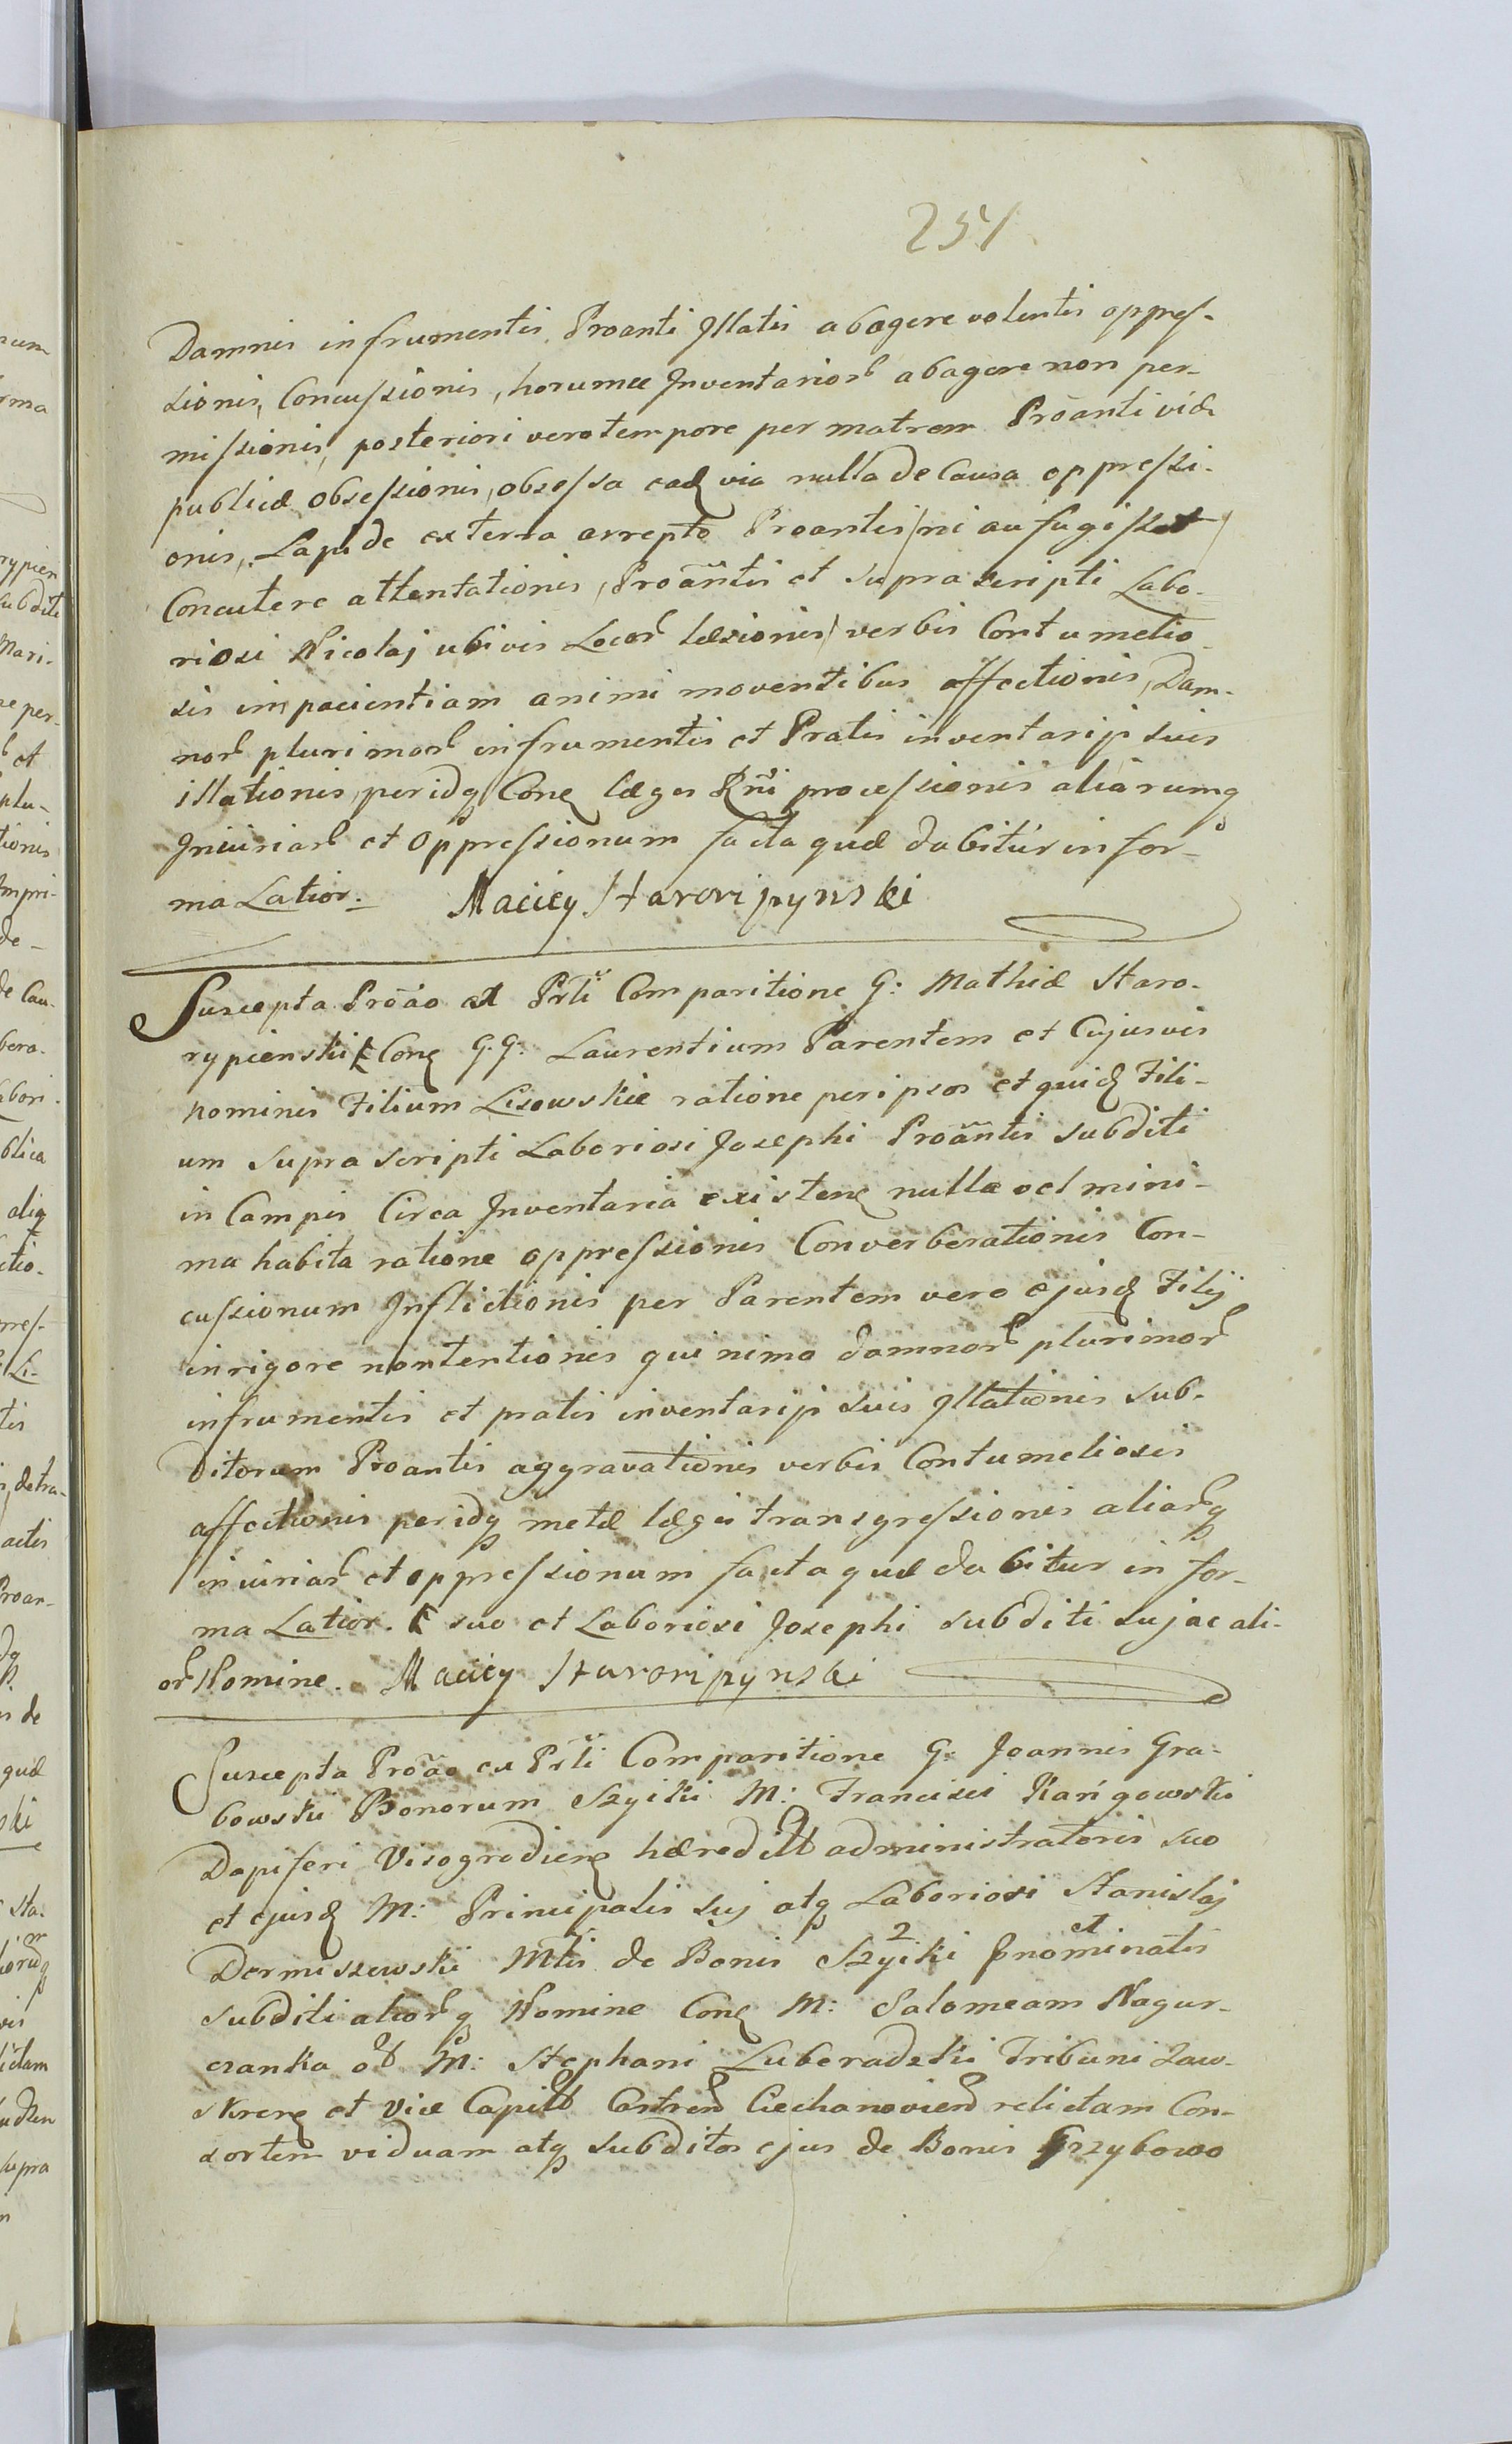 251
Damnis in frumentis Proanti Illatis abagere volentis oppres-
sionis, Concussionis, horumce Inventarior abagere non per-
missionis, posteriori vero tempore per matrem Proanti viæ
publicæ obsessionis, obsessa eadq via nulla de Causa oppressi-
onis, Lapide ex terra arrepto Proantis / ni aufugisset /
Concutere attentationis, Proãntis et supra scripti Labo-
riosi Nicolaj ubivis Locor læsionis, verbis Contumelio-
sis impacientiam animi moventibus affectionis, Dam-
nor plurimor in frumentis et Pratis inventarijs suis
illationis, per idq Conq læges Rñi processionis aliarumq
Iniuriar et Oppressionum facta quæ dabitur in for-
ma Latior. Maciey Staroripynski
Suscepta Proão et Prlī Comparitione G: Mathiæ Staro-
rypienski Conq G.G. Laurentium Parentem et Cujusvis
nominis Filium Lisowskie ratione per ipsos et quidq Fili-
um supra scripti Laboriosi Josephi Proãntis subditi
in Campis Circa Inventaria existenq nulla vel mini-
ma habita ratione oppressionis Converberationis Con-
cussionum Inflictionis per Parentem vero ejusdq Filij
in rigore nontentionis quinimo damnor plurimor
in frumentis et pratis inventarijs suis Illationis sub-
ditorum Proantis aggravationis verbis Contumeliosis
affectionis per idq metæ lægis transgressionis aliarq
iniuriar et oppressionum facta quæ dabitur in for-
ma Latior. suo et Laboriosi Josephi subditi suj ac ali-
or Nomine. Maciey Staroripynski
Suscepta Proão cu Prlī Comparitione G: Joannis Gra-
bowski Bonorum Szyiki M: Francisci Karńgowski
Dapiferi Visogrodienq hæredit administratoris suo
et ejusdq M: Principalis suj atq Laboriosi Stanislaj
et
Dermiszewski Mtis de Bonis Szyiki 2 pnominatis
subditi aliorq Nomine Conq M: Salomeam Nagur-
czanka oð M: Stephani Luberadzki Tribuni Zaw-
skrenq et Vice Capit Castren Ciechanovien relictam Con-
sortem viduam atq subditos ejus de Bonis Grzybowo